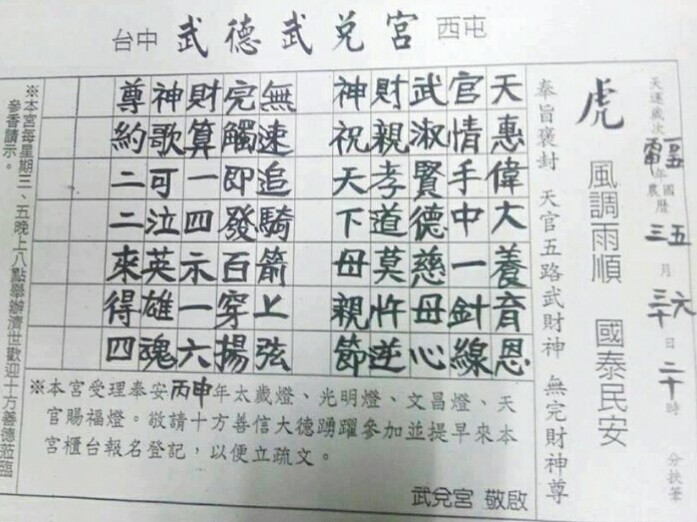 台中 武德武兌宮 西屯
天運歲次 年 國農曆 五三 月 六三十 日 二十時 分扶筆
虎 風調雨順 國泰民安
奉旨褒封 天官五路武財神 無完財神尊
天惠偉大養育恩
官情手中一針線
武淑賢德慈母心
財親孝道莫忤逆
神祝天下母親節
無速追騎箭上弦
完觸即發百穿揚
財算一四示一六
神歌可泣英雄魂
尊約二二來得四
※本宮受理奉安丙申年太歲燈、光明燈、文昌燈、天
官賜福燈。敬請十方善信大德踴躍參加並提早來本
宮櫃台報名登記，以便立疏文。
武兌宮 敬啟
※本宮每星期三、五晚上八點舉辦濟世歡迎十方善德蒞臨
參香請示。